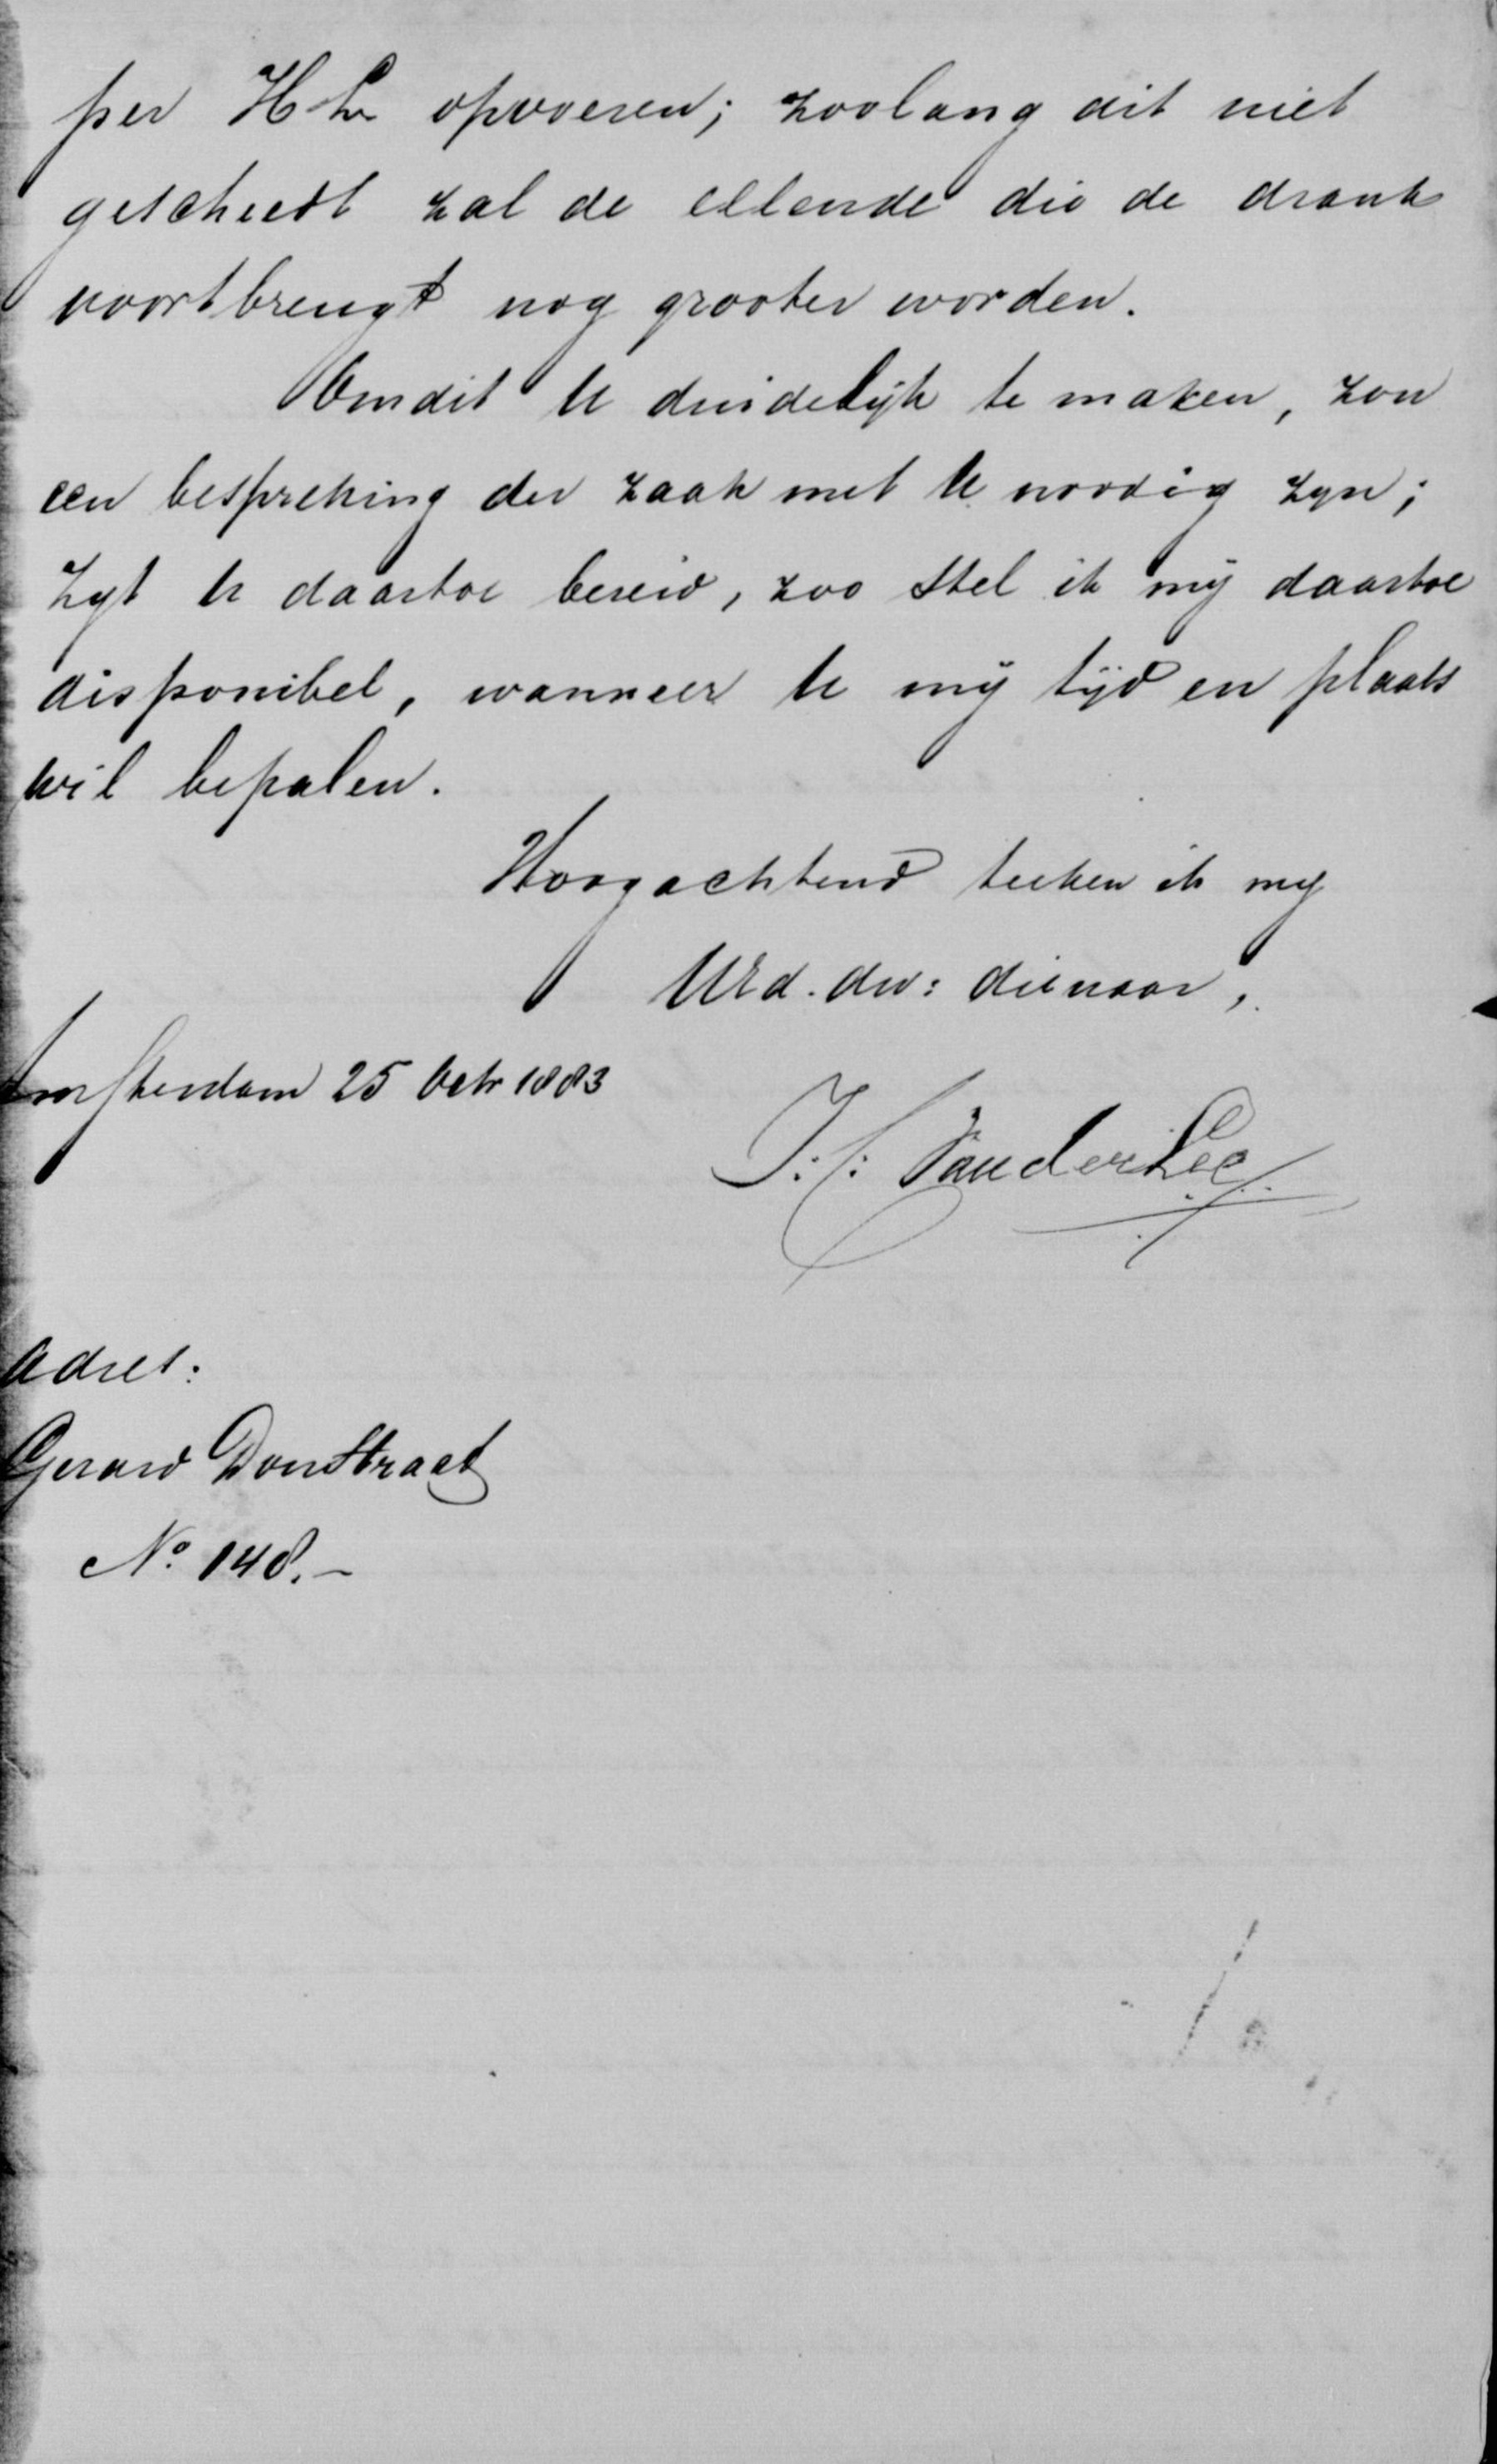 per HL opvoeren; zoolang dit niet
geschiedt zal de ellende die de drank
voortbrengt nog grooter worden.
Om dit U duidelijk te maken, zou
een bespreking der zaak met U noodig zyn;
Zyt U daartoe bereid, zoo stel ik mij daartoe
disponibel, wanneer U mij tijd en plaats
wil bepalen.
Hoogachtend teeken ik my
UEd. dw: dienaar,
Amsterdam 25 Octr 1883
VanderLee
Adres:
Gerard Doustraat
No 148.-